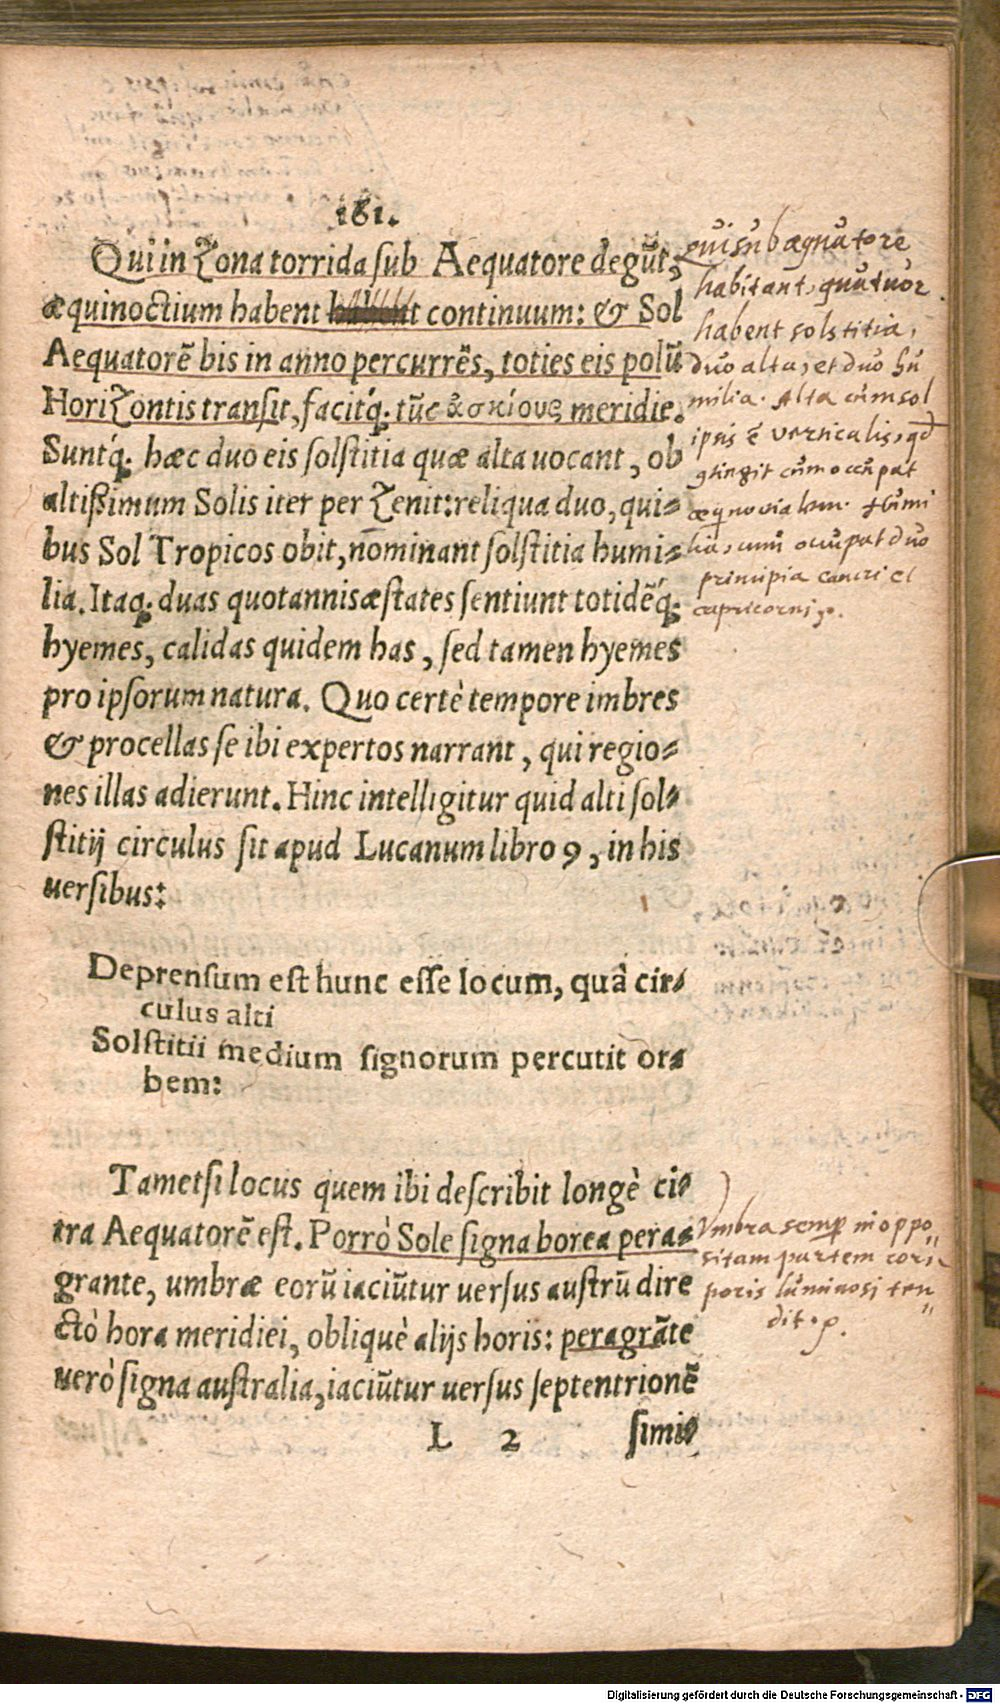 161.
Qui in Zona torrida sub Aequatore degũt,
æquinoctium habent habent continuum: & Sol
Aequatorẽ bis in anno percurrẽs, toties eis polũ
Horizontis transit, facitq́; tũc ἀσκίους meridie.
Suntq́; hæc duo eis solstitia quæ alta uocant, ob
altißimum Solis iter per Zenit: reliqua duo, qui-
bus Sol Tropicos obit, nominant solstitia humi-
lia. Itaq; duas quotannis æstates sentiunt totidẽq́;
hyemes, calidas quidem has, sed tamen hyemes
pro ipsorum natura. Quo certè tempore imbres
& procellas se ibi expertos narrant, qui regio-
nes illas adierunt. Hinc intelligitur quid alti sol-
stitij circulus sit apud Lucanum libro 9, in his
uersibus:
Deprensum est hunc esse locum, quà cir-
culus alti
Solstitii medium signorum percutit or-
bem:
Tametsi locus quem ibi describit longè ci-
tra Aequatorẽ est. Porrò Sole signa borea pera-
grante, umbræ eorũ iaciũtur uersus austrũ dire
ctò hora meridiei, obliquè alijs horis: peragrãte
uerò signa australia, iaciũtur uersus septentrionẽ
L 2 simi-
Qui sub æquatore
habitant, quatuor
habent solstitia,
duo alta, et duo hu
milia. Alta cùm sol
ipsis ẽ verticalis, qd
cum occupat
humi
lia, cum occupat duo
principia cancri et
capricorni
Umbra semp in oppo
sitam partem cor
poris luminosi ten
dit.
Digitalisierung gefördert durch die Deutsche Forschungsgemeinschaft - DFG